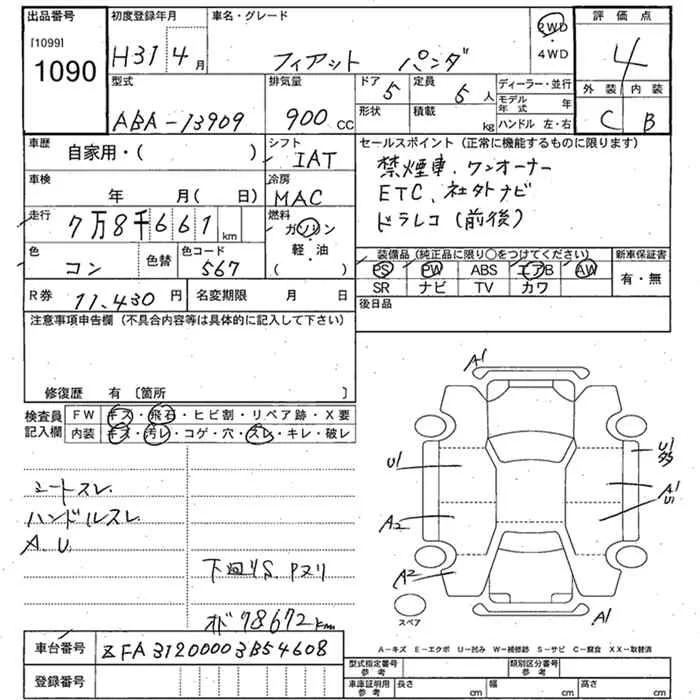 出品番号 初度登録年月 車名・グレード 2WD ・ 4WD 評価点
[1099]
1090
H31 4月 フィアット パンダ 4
型式 排気量 ドア 定員 ディーラー・並行 外装 内装
ABA-13909 900cc 5 5人 モデル年式 年 C B
形状 積載 kg ハンドル 左・右
車歴 自家用・( ) シフト IAT セールスポイント (正常に機能するものに限ります)
禁煙車、ワンオーナー
ETC、社外ナビ
ドラレコ(前後)
車検 年 月( 日) 冷房 MAC
走行 7万8千661km 燃料 ガソリン ・ 軽・油 ( )
色 コン 色替 色コード 567
装備品 (純正品に限り○をつけてください) 新車保証書
PS PW ABS エアB AW 有・無
SR ナビ TV カワ
R券 11,430円 名変期限 月 日 後日品
注意事項申告欄 (不具合内容等は具体的に記入して下さい)
修復歴 有 〔箇所 〕
検査員記入欄 FW キズ・飛石・ヒビ割・リペア跡・X要
内装 キズ・汚レ・コゲ・穴・スレ・キレ・破レ
シートスレ
ハンドルスレ
A.U.
下廻りS.Pヌリ
オド 78672km
A1
U1
U1
A2
A1
U1
A2
A1
スペア
A-キズ E-エクボ U-凹み W-補修跡 S-サビ C-腐食 XX-取替済
車台番号 ZFA31200003B54608
登録番号
型式指定番号 参考 類別区分番号 参考
車庫証明用 参考 長さ cm 幅 cm 高さ cm